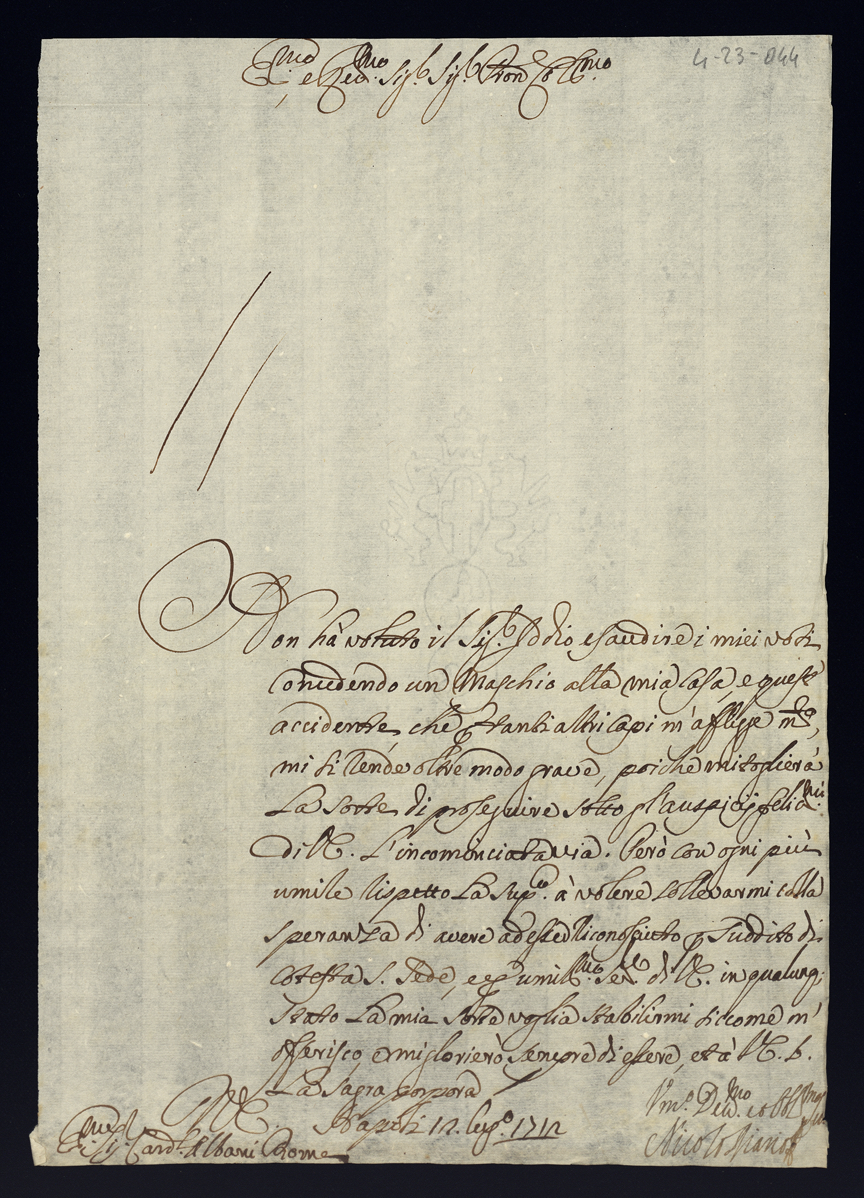 4-23-044
E.mo e Rev.mo Sig.r Sig.r Pron. Col.mo
Non hà voluto il Sig.r Iddio esaudire i miei voti
concedendo un Maschio alla mia casa, e questo
accidente, che p tanti altri capi m'affligge m.to,
mi si rende oltre modo grave, poiche mi toglierà
La sorte di proseguire sotto gl'auspicij felic.mi
di V.E. L'incominciata via. Però con ogni più
umile rispetto La sup.co à volere sollevarmi colla
speranza di avere ad essere riconosciuto p suddito di
cotesta S. Sede, e p umil.mo Ser.re di V.E. in qualunq;
stato La mia sorte voglia stabilirmi siccome m'
offerisco, e mi glorierò sempre di essere, et à V.E. b.
La Sagra porpora
V.E. Napoli 12. lug.o 1712
Em. Sig. Card.l Albani Roma
Nicolò